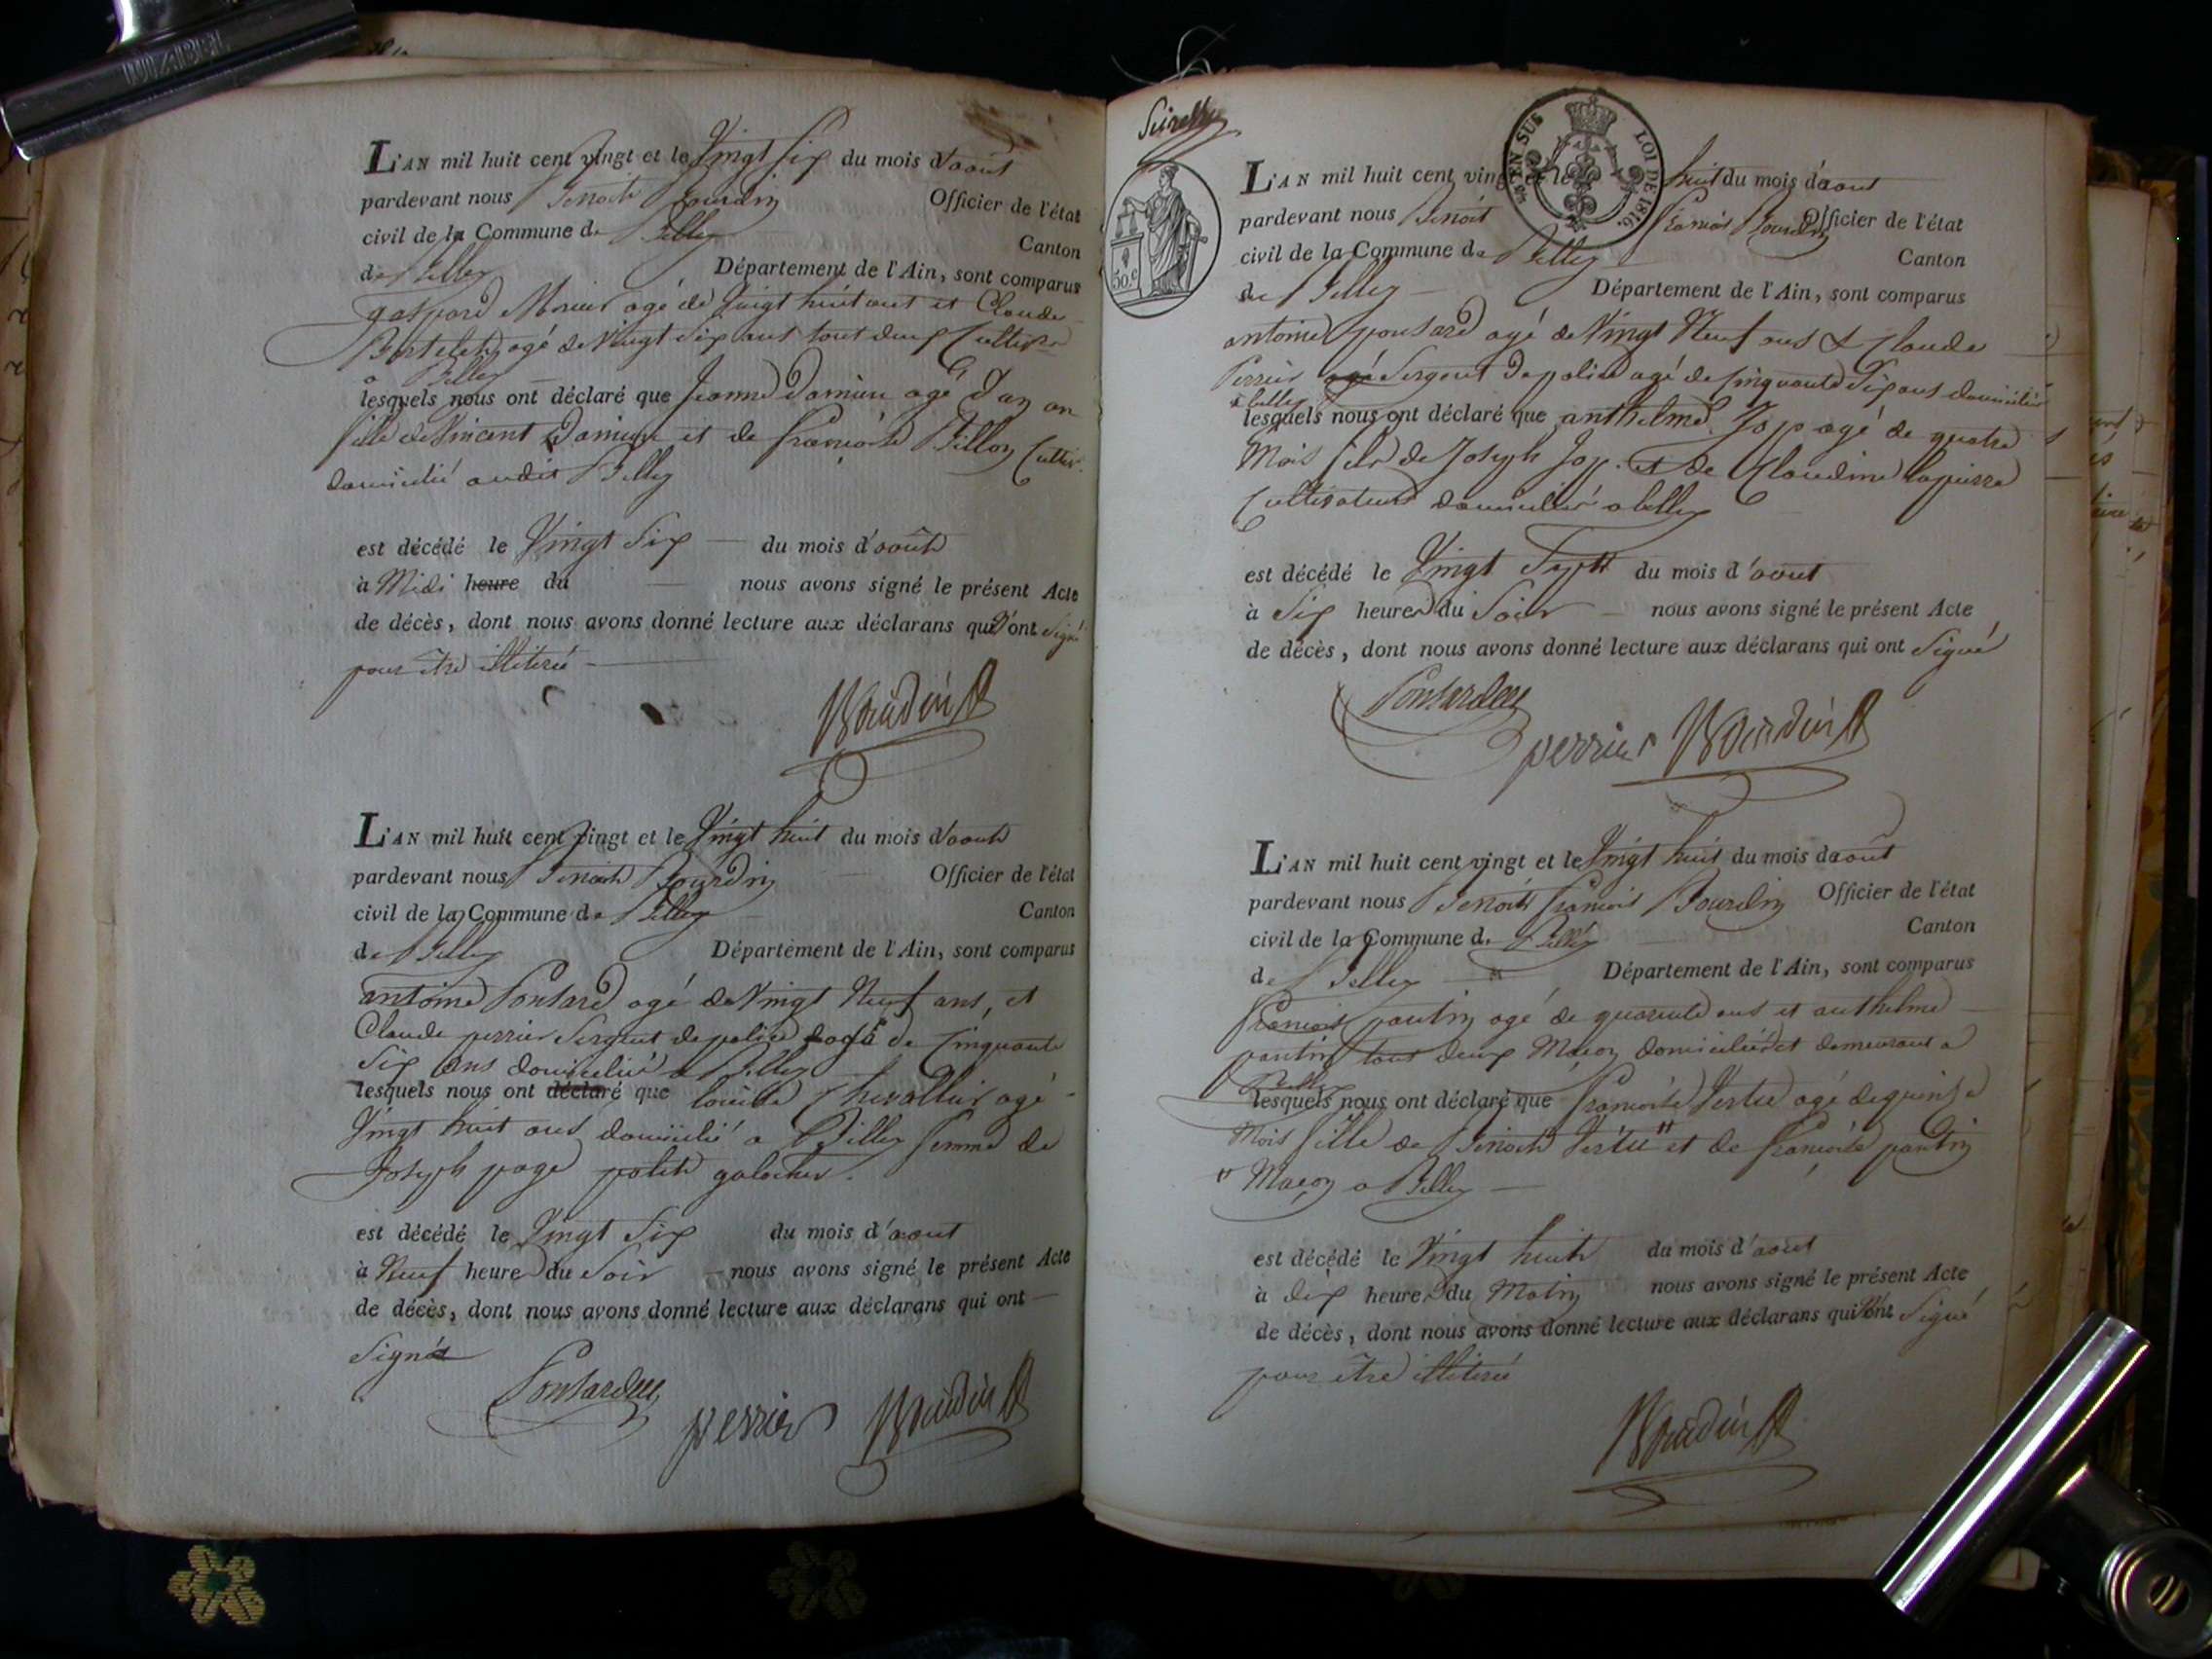 L'AN mil huit cent vingt et le Vingt Six du mois d'aout
pardevant nous Benoit Bourdin Officier de l'état
civil de la Commune de Belley Canton
de Belley Département de l'Ain, sont comparus
gaspard agé de Vingt huit ans et Claude
Bertelet agé de Vingt Six ans tout deux Cultivr
a Belley
lesquels nous ont déclaré que Jeanne Damien agé d'un an
fille de Vincent Damien et de francoise Billon Cultiv.
domicilié audit Belley
est décédé le Vingt Six du mois d'août
à Midi heure du nous avons signé le présent Acte
de décès, dont nous avons donné lecture aux déclarans qui n'ont signé
pour être illiteré
Bourdin
L'AN mil huit cent vingt et le Vingt huit du mois d'aout
pardevant nous Benoit Bourdin Officier de l'état
civil de la Commune de Belley Canton
de Belley Département de l'Ain, sont comparus
antoine Ponsard agé de Vingt Neuf ans, et
Claude perrier Sergent de police agé de Cinquante
Six ans domicilié a Belley
lesquels nous ont déclaré que louise Chevallier agé
Vingt huit ans domicilié a Belley femme de
Joseph page galocher.
est décédé le Vingt Six du mois d'aout
à Neuf heure du Soir nous avons signé le présent Acte
de décès, dont nous avons donné lecture aux déclarans qui ont
Signé
Ponsard perrier Bourdin
L'AN mil huit cent vingt et le huit du mois d'aout
EN SUS LOI DE 1816.
pardevant nous Benoit francois Bourdin Officier de l'état
50.c
civil de la Commune de Belley Canton
de Belley Département de l'Ain, sont comparus
antoine ponsard agé de Vingt Neuf ans & Claude
Perrier agé Sergent de police agé de Cinquante Six ans domicilié
a belley
lesquels nous ont déclaré que anthelme Jop agé de quatre
Mois fils de Joseph Jop. et de Claudine lapierre
Cultivateurs domicilié a belley
est décédé le Vingt Sept du mois d'aout
à Six heure du Soir nous avons signé le présent Acte
de décès, dont nous avons donné lecture aux déclarans qui ont Signé
Ponsard
perrier Bourdin
L'AN mil huit cent vingt et le Vingt huit du mois d'août
pardevant nous Benoit francois Bourdin Officier de l'état
civil de la Commune de Belley Canton
de Belley Département de l'Ain, sont comparus
francois pantin agé de quarante ans et anthelme
pantin tout deux Maçon domicilié et demeurant a
Belley
lesquels nous ont déclaré que francoise Vertu agé de quinse
Mois fille de Benoit Vertu " et de francoise pantin
" Maçon a Belley
est décédé le Vingt huit du mois d'aout
à dix heure du Matin nous avons signé le présent Acte
de décès, dont nous avons donné lecture aux déclarans qui n'ont Signé
pour être illiteré
Bourdin